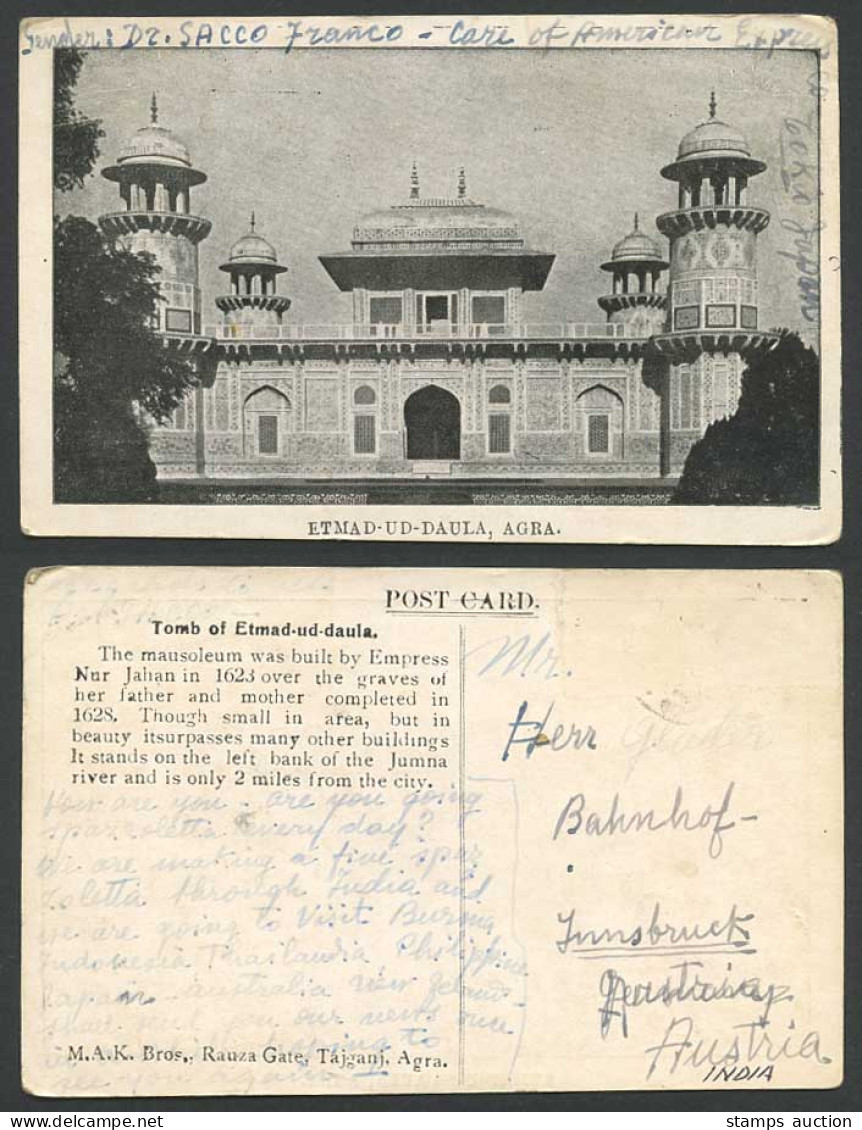 Sender: Dr. SACCO Franco - Care of American Express
Tokio Japan
ETMAD-UD-DAULA, AGRA.
POST CARD.
Tomb of Etmad-ud-daula.
The mausoleum was built by Empress
Nur Jahan in 1623 over the graves of
her father and mother completed in
1628. Though small in area, but in
beauty itsurpasses many other buildings
It stands on the left bank of the Jumna
river and is only 2 miles from the city.
How are you - are you going
spazzoletta every day?
We are making a fine spaz
zoletta through India and
we are going to visit Burma
Indonesia Thailandia Philippine
Japan - Australia New Zeland -
shall send you our news once
to
see you again
M.A.K. Bros., Rauza Gate, Tajganj. Agra.
Mr.
Herr
Bahnhof-
Innsbruck
Austria
INDIA
stamps auction